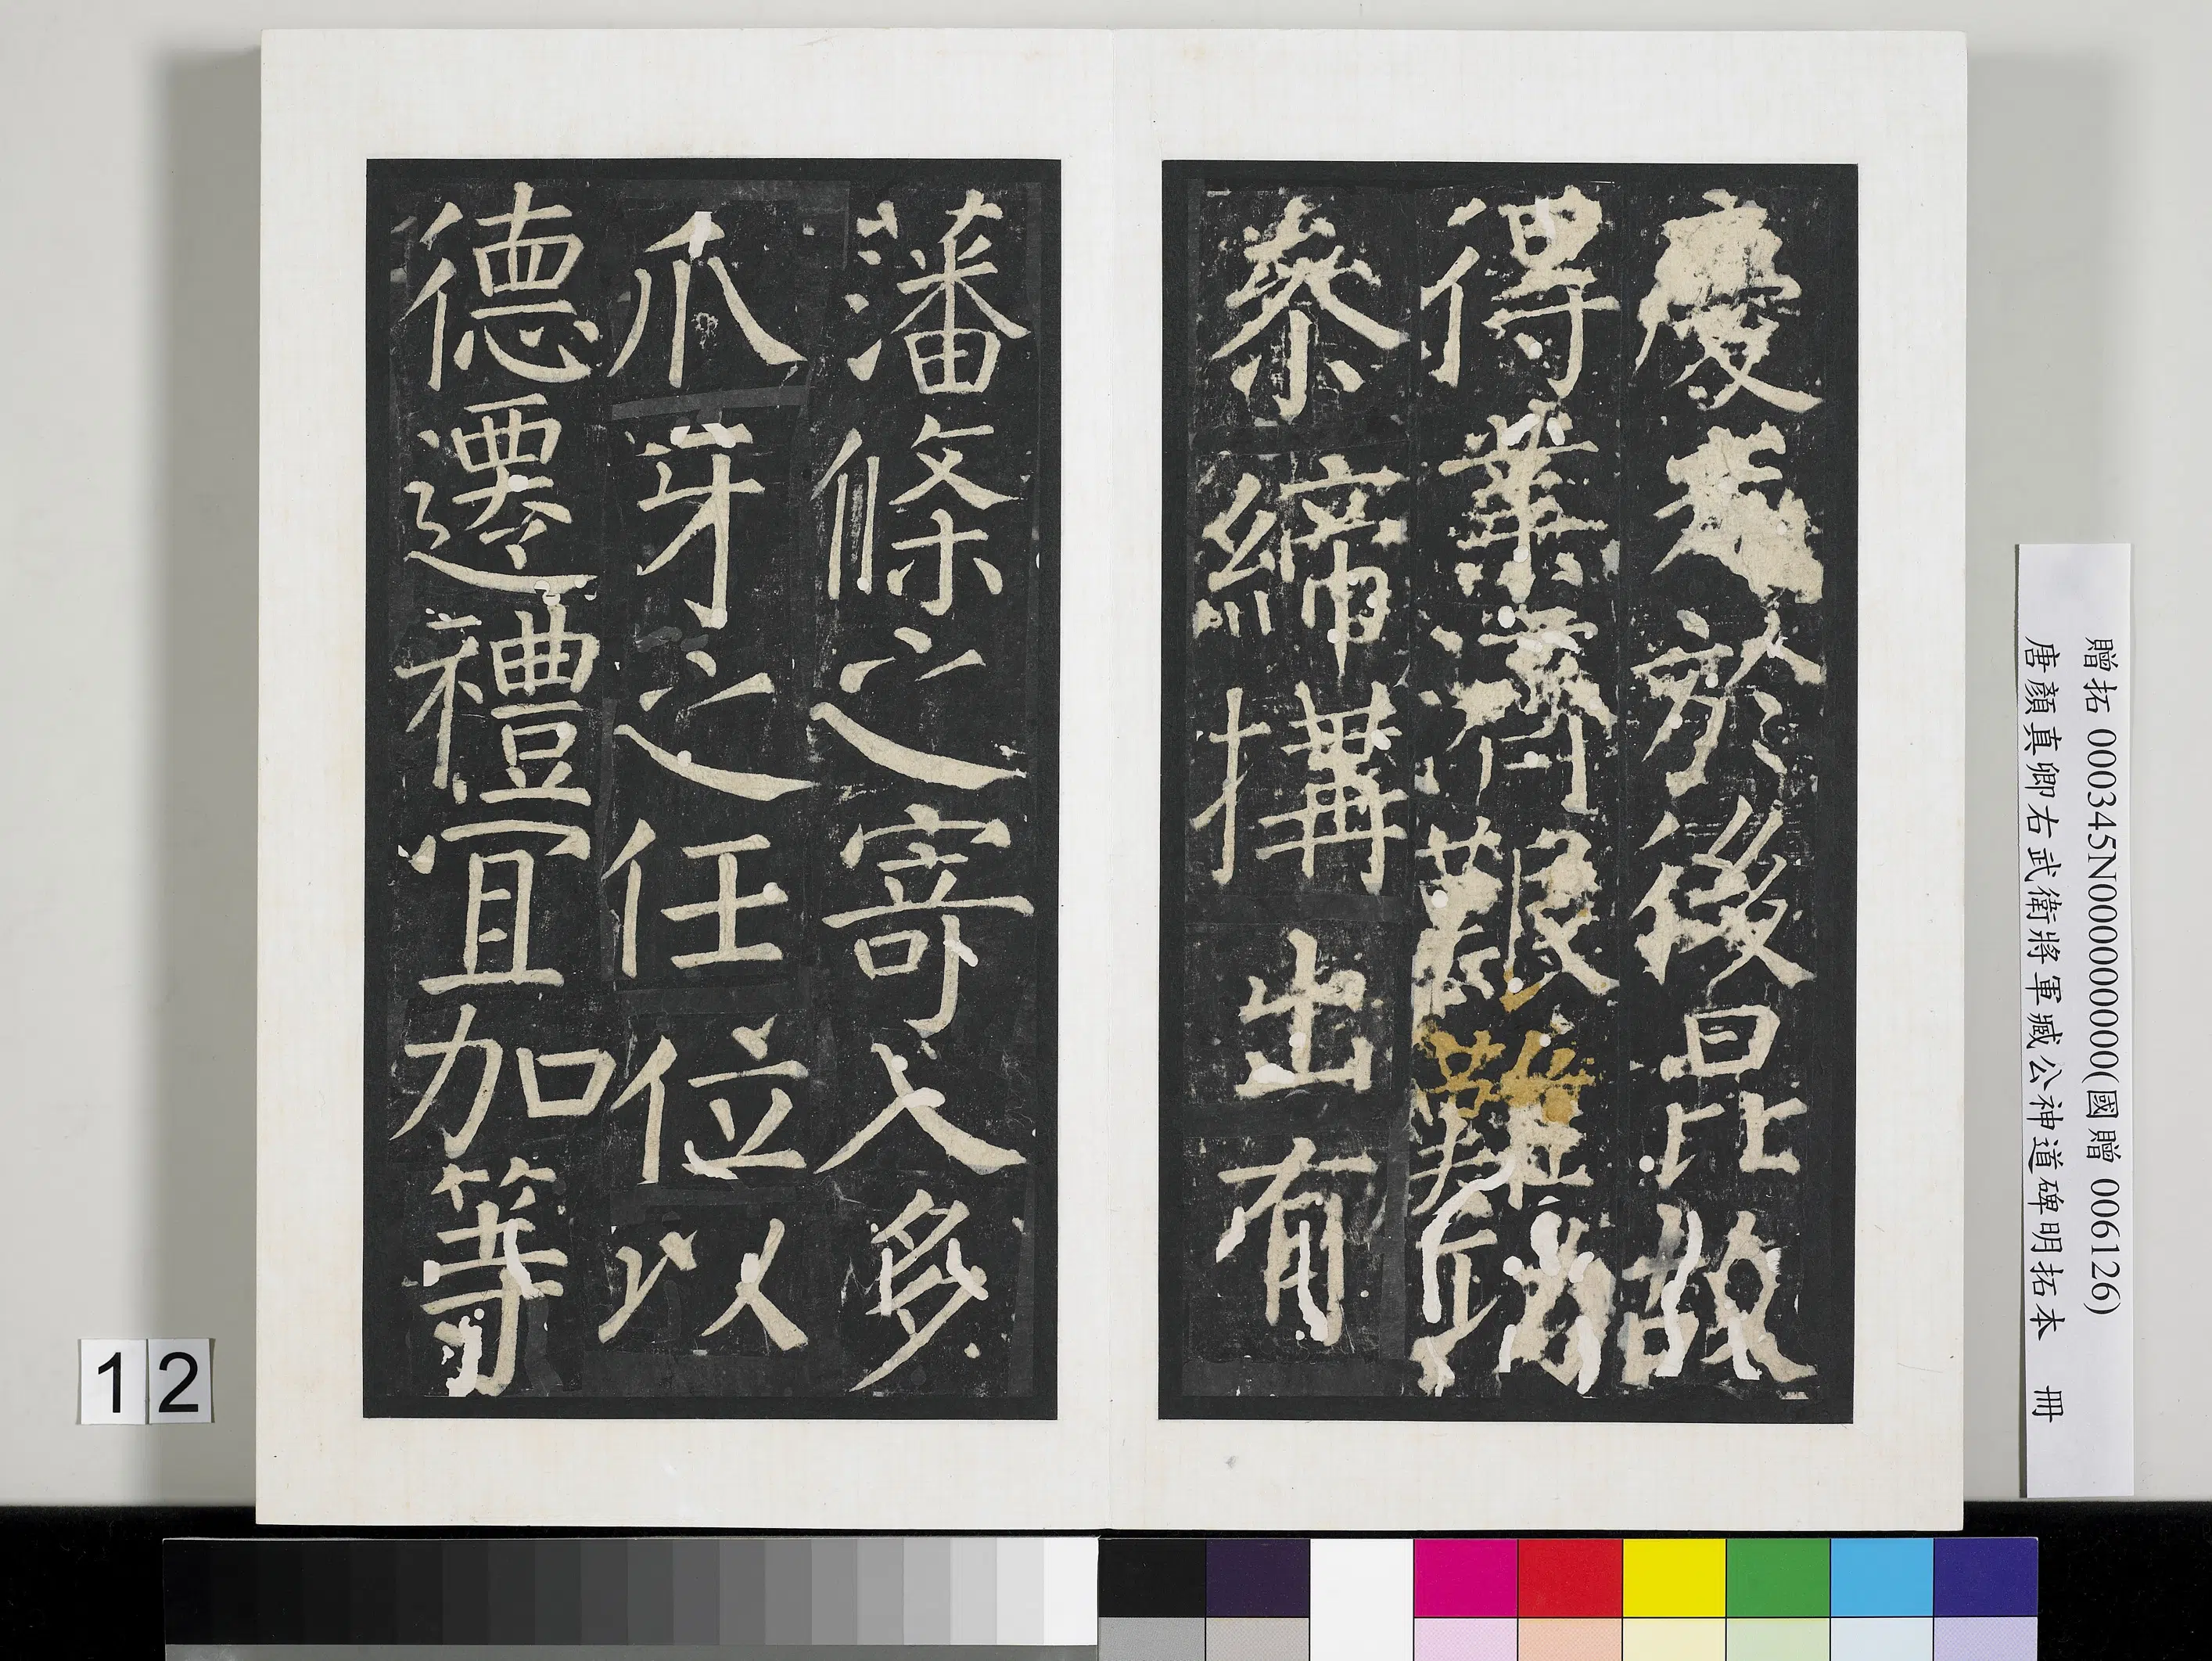 慶於後昆故
得業濟艱難
叅締搆出有
藩條之寄入多
爪牙之任位以
德遷禮宜加等
贈拓 000345N000000000(國贈 006126)
唐顏真卿右武衛將軍臧公神道碑明拓本 冊
12